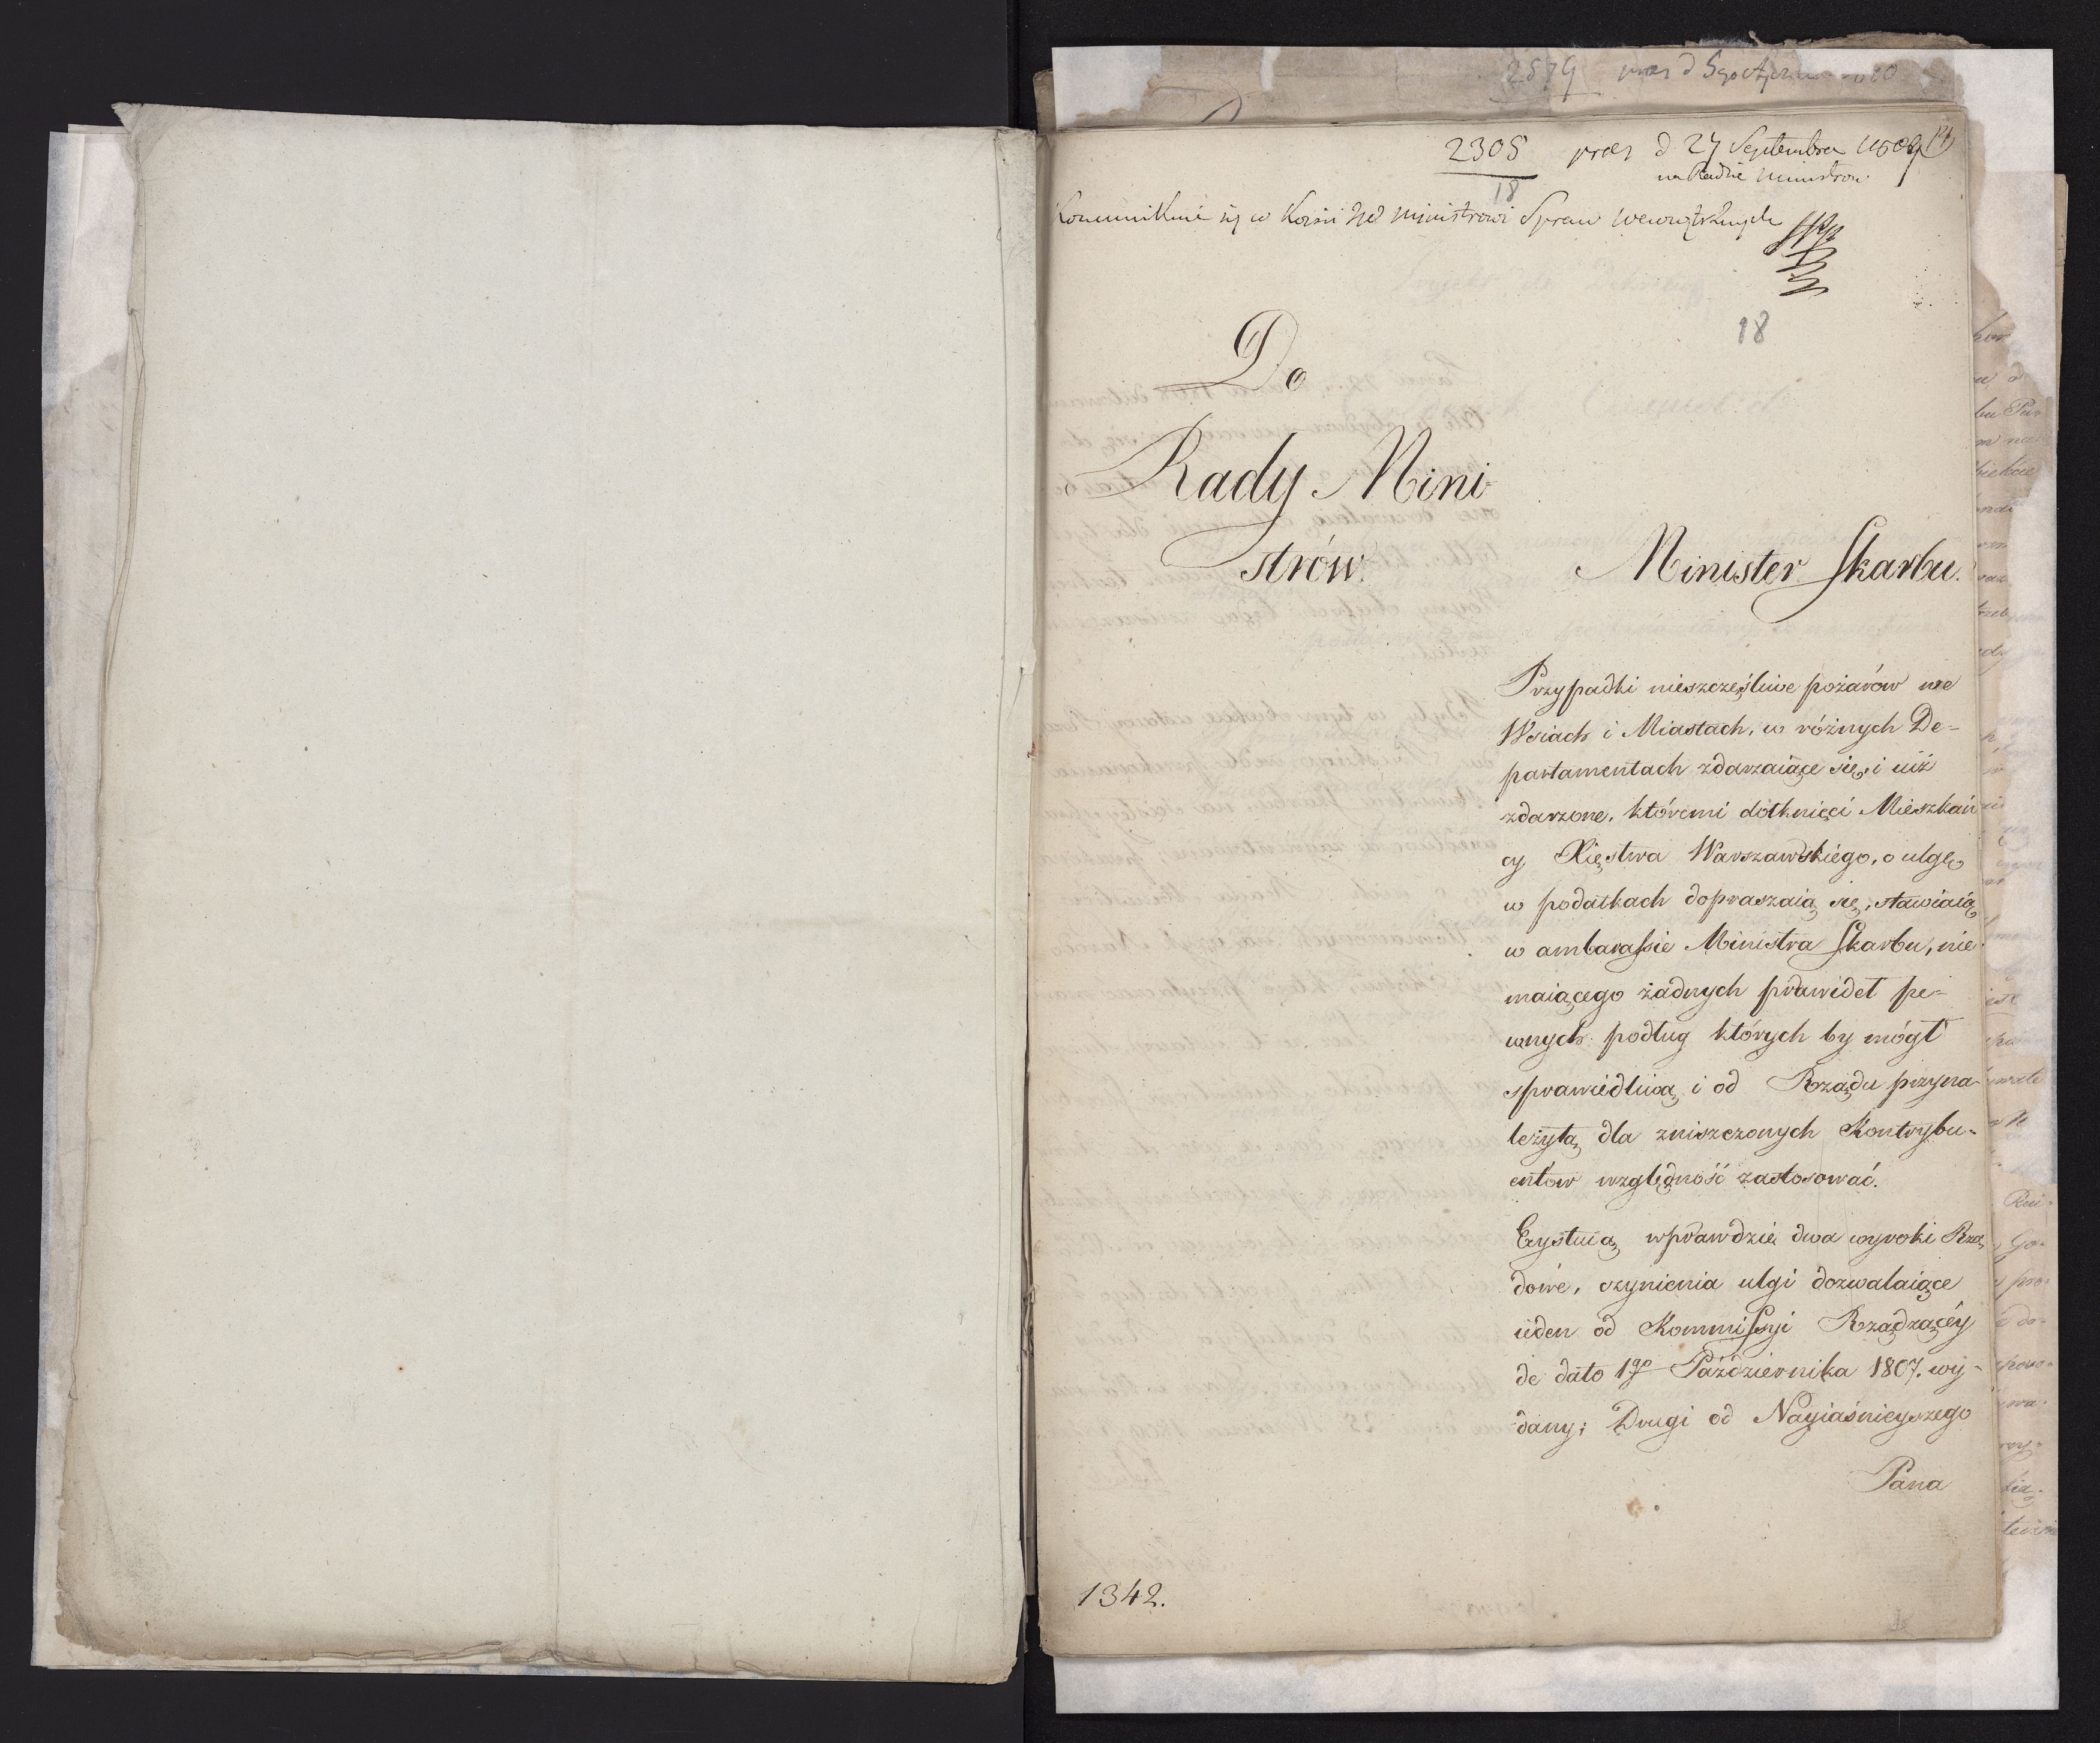 2579
2305 præs d 27 Septembra 1809
na Radzie Ministrow
18
Kommunikuie się w Kopii JW Ministrowi Spraw wewnętrznych
18
Do
Rady Mini
strów.
Minister Skarbu.
Przypadki nieszczęśliwe pożarów we
Wsiach i Miastach, w różnych De-
partamentach zdarzaiące się, i iuż
zdarzone, któremi dotknięci Mieszkań
cy Xięstwa Warszawskiego, o ulgę
w podatkach dopraszaią się, stawiaią
w ambarassie Ministra Skarbu, nie
maiącego żadnych prawideł pe-
wnych podług których by mógł
sprawiedliwą i od Rządu przyna-
leżytą dla zniszczonych Kontrybu-
entow względność zastosować.
Exystuią wprawdzie dwa wyroki Rzą
dowe, czynienia ulgi dozwalaiące
ieden od Kommissyi Rządzącéy
de dato 1go Października 1807. wy-
dany; Drugi od Nayiaśnieyszego
Pana
1342.